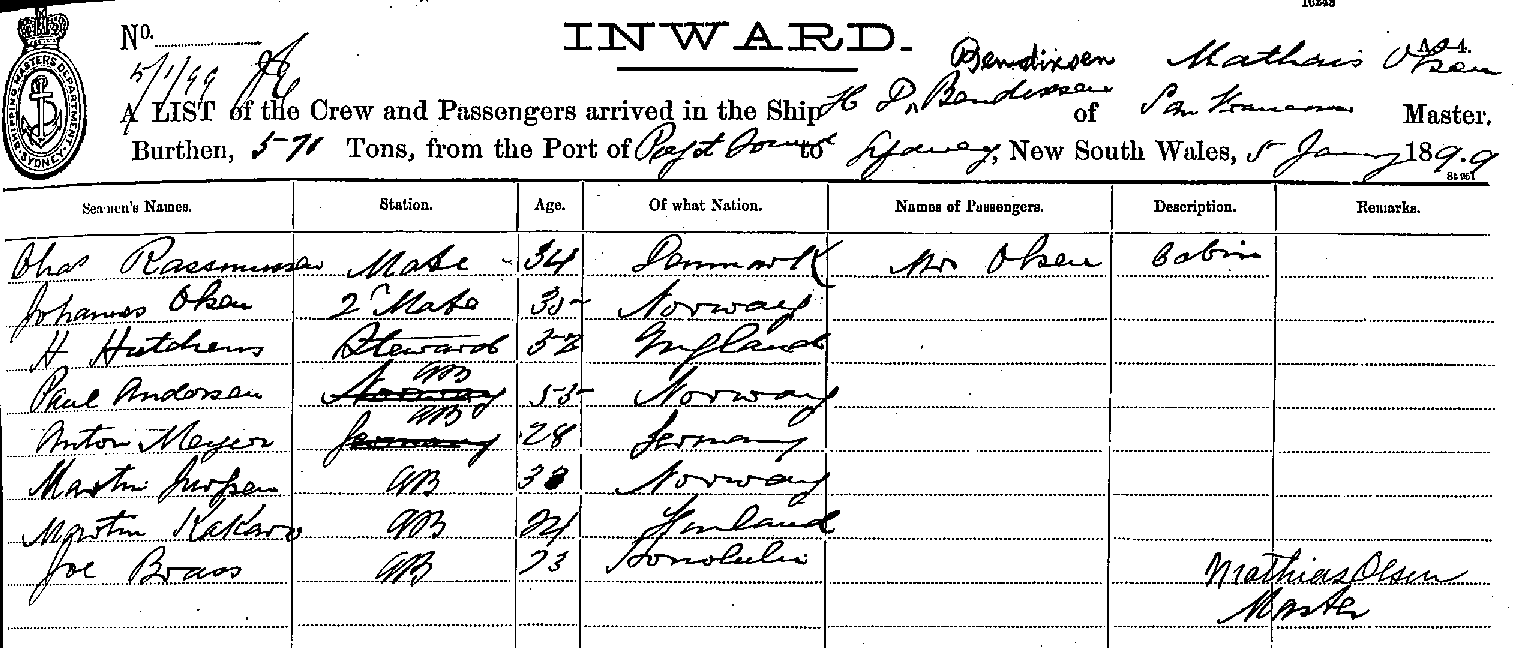 No.
INWARD.
5/1/99
Bendixsen Mathais Olsen
A LIST of the Crew and Passengers arrived in the Ship H D Bendixsen of San Francisco Master.
Burthen, 571 Tons, from the Port of to Sydney, New South Wales, 5 January 1899
SHIPPING MASTERS DEPARTMENT SYDNEY
Seamen's Names. Station. Age. Of what Nation. Names of Passengers. Description. Remarks.
Chas Rassmussen Mate 34 Denmark Mrs Olsen Cabin
Johannes Olsen 2d Mate 35 Norway
H Hutchens Steward 32 England
Paul Andersen Norway AB 55 Norway
Anton Meyer Germany AB 28 Germany
Martin AB Norway
Martin Kakaro AB 24 Finland
Joe Brass AB 23 Honolulu
Mathias Olsen
Master